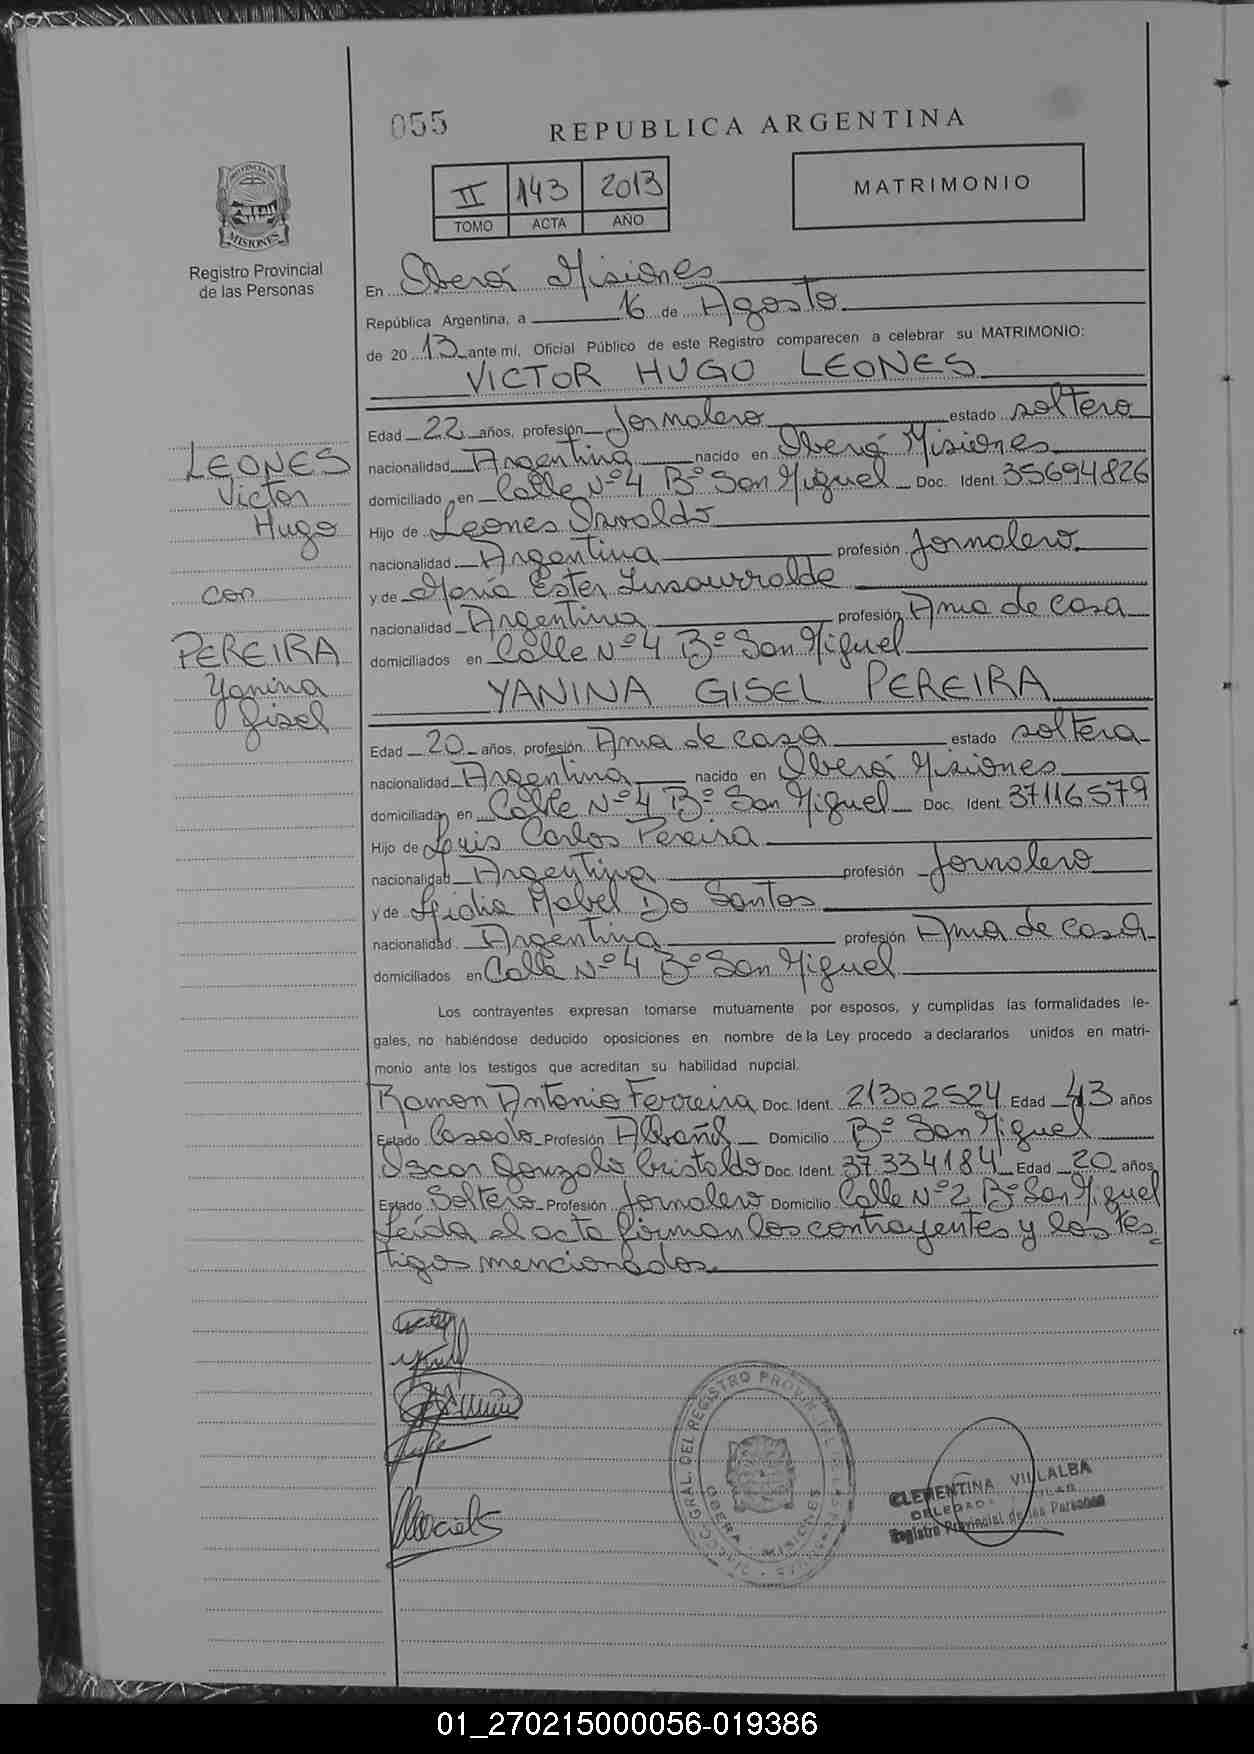 055
REPUBLICA ARGENTINA
II 143 2013
TOMO ACTA AÑO
MATRIMONIO
PROVINCIA DE
MISIONES
Registro Provincial
de las Personas
En Oberá Misiones
República Argentina, a 16 de Agosto
de 2013 ante mí, Oficial Público de este Registro comparecen a celebrar su MATRIMONIO:
VICTOR HUGO LEONES
Edad 22 años, profesión Jornalero estado soltero
nacionalidad Argentina nacido en Oberá Misiones
domiciliado en Calle Nº 4 Bº San Miguel Doc. Ident. 35694826
Hijo de Leones Osvaldo
nacionalidad Argentina profesión Jornalero
y de María Ester Insaurralde
nacionalidad Argentina profesión Ama de casa
domiciliados en Calle Nº 4 Bº San Miguel
LEONES
Victor
Hugo
con
PEREIRA
Yanina
Gisel
YANINA GISEL PEREIRA
Edad 20 años, profesión Ama de casa estado soltera
nacionalidad Argentina nacido en Oberá Misiones
domiciliada en Calle Nº 4 Bº San Miguel Doc. Ident. 37116579
Hijo de Luis Carlos Pereira
nacionalidad Argentina profesión Jornalero
y de Lidia Mabel Do Santos
nacionalidad Argentina profesión Ama de casa
domiciliados en Calle Nº 4 Bº San Miguel
Los contrayentes expresan tomarse mutuamente por esposos, y cumplidas las formalidades le-
gales, no habiéndose deducido oposiciones en nombre de la Ley procedo a declararlos unidos en matri-
monio ante los testigos que acreditan su habilidad nupcial.
Ramon Antonio Ferreira Doc. Ident. 21302524 Edad 43 años
Estado Casado Profesión Albañil Domicilio Bº San Miguel
Oscar Gonzalo Cristaldo Doc. Ident. 37334184 Edad 20 años
Estado Soltero Profesión Jornalero Domicilio Calle Nº 2 Bº San Miguel
Leída el acta firman los contrayentes y los tes-
tigos mencionados
GRAL. DEL REGISTRO PROVIN.
OBERA - MISIONES
CLEMENTINA VILLALBA
Registro Provincial de las Personas
01_270215000056-019386